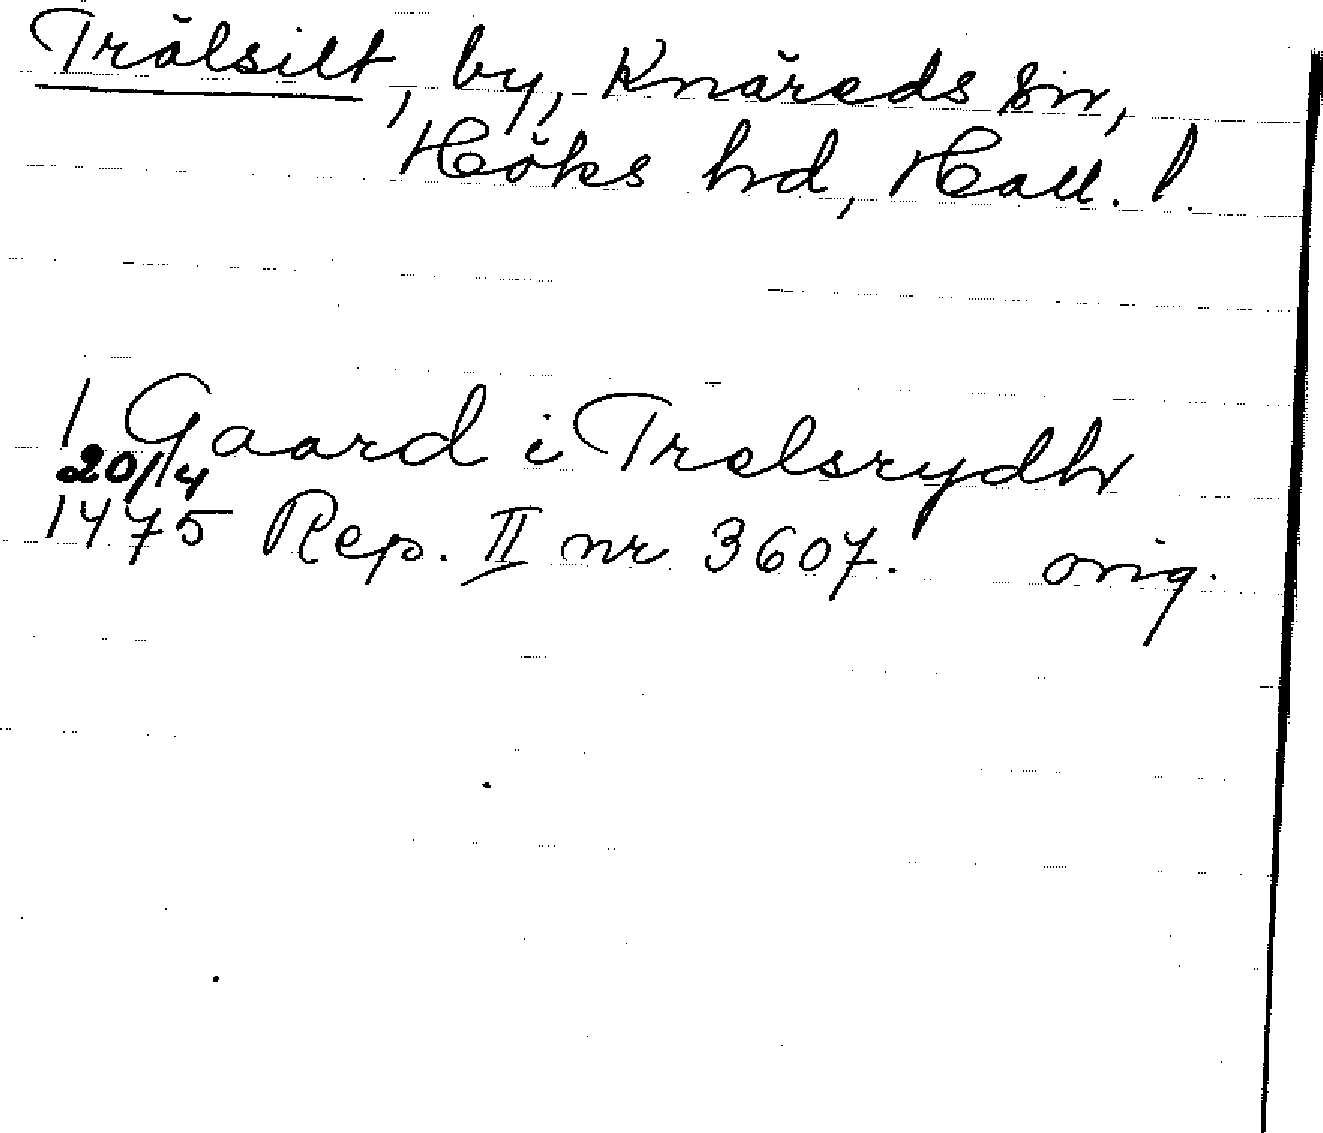 Trälsilt, by, Knäreds sn,
Höks hd, Hall. l.
1 Gaard i Trelsrydh
20/4
1475 Rep. II nr 3607. orig.